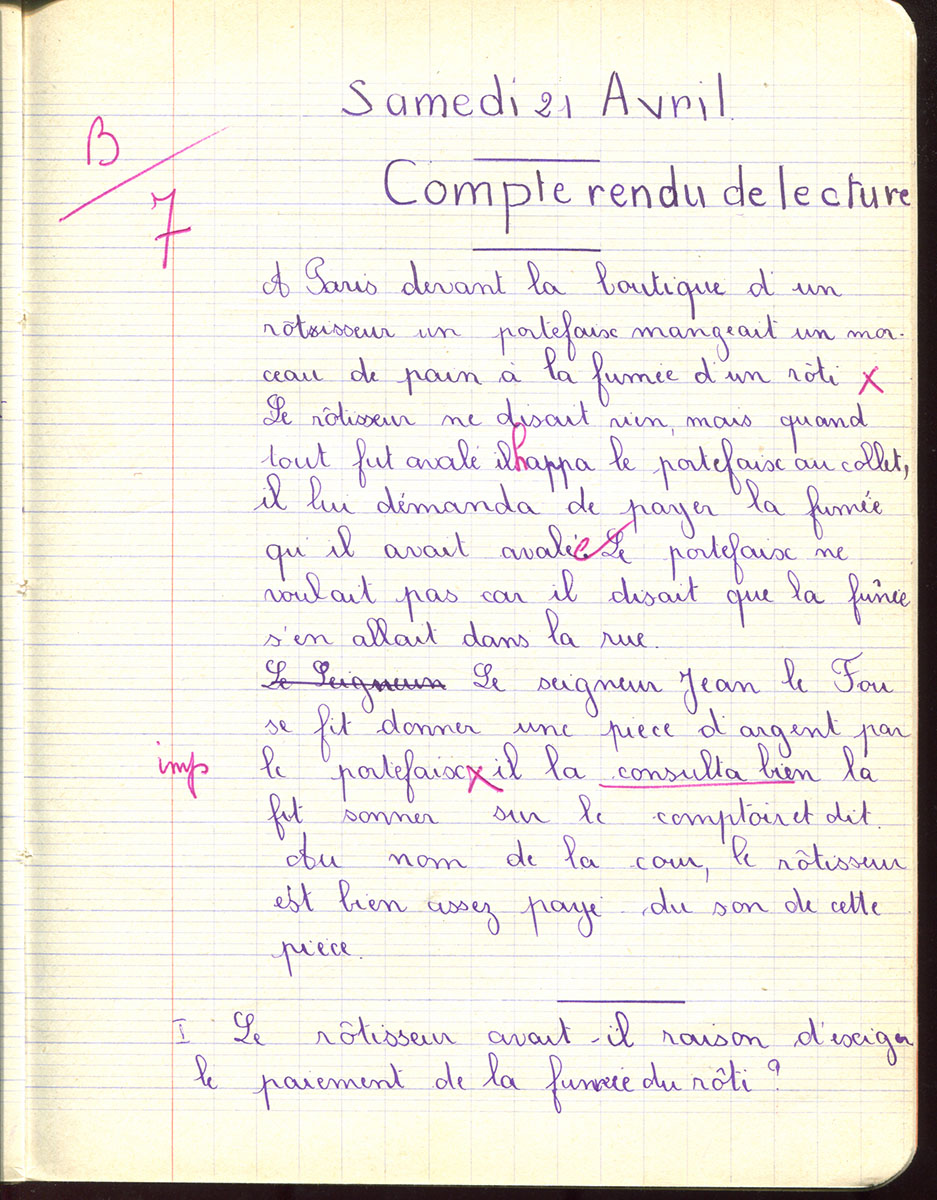 Samedi 21 Avril
B
7
Compte rendu de lecture
A Paris devant la boutique d'un
rôtisseur un portefaix mangeait un mor-
ceau de pain à la fumée d'un rôti x
Le rôtisseur ne disait rien, mais quand
tout fut avalé il happa le portefaix au collet,
il lui démanda de payer la fumée
qu'il avait avalée Le portefaix ne
voulait pas car il disait que la fumée
s'en allait dans la rue.
Le Seigneur Le seigneur Jean le Fou
se fit donner une pièce d'argent par
imp le portefaix x il la consulta bien la
fit sonner sur le comptoir et dit.
Au nom de la cour, le rôtisseur
est bien assez payé du son de cette
pièce.
I Le rôtisseur avait-il raison d'exiger
le paiement de la fumée du rôti ?